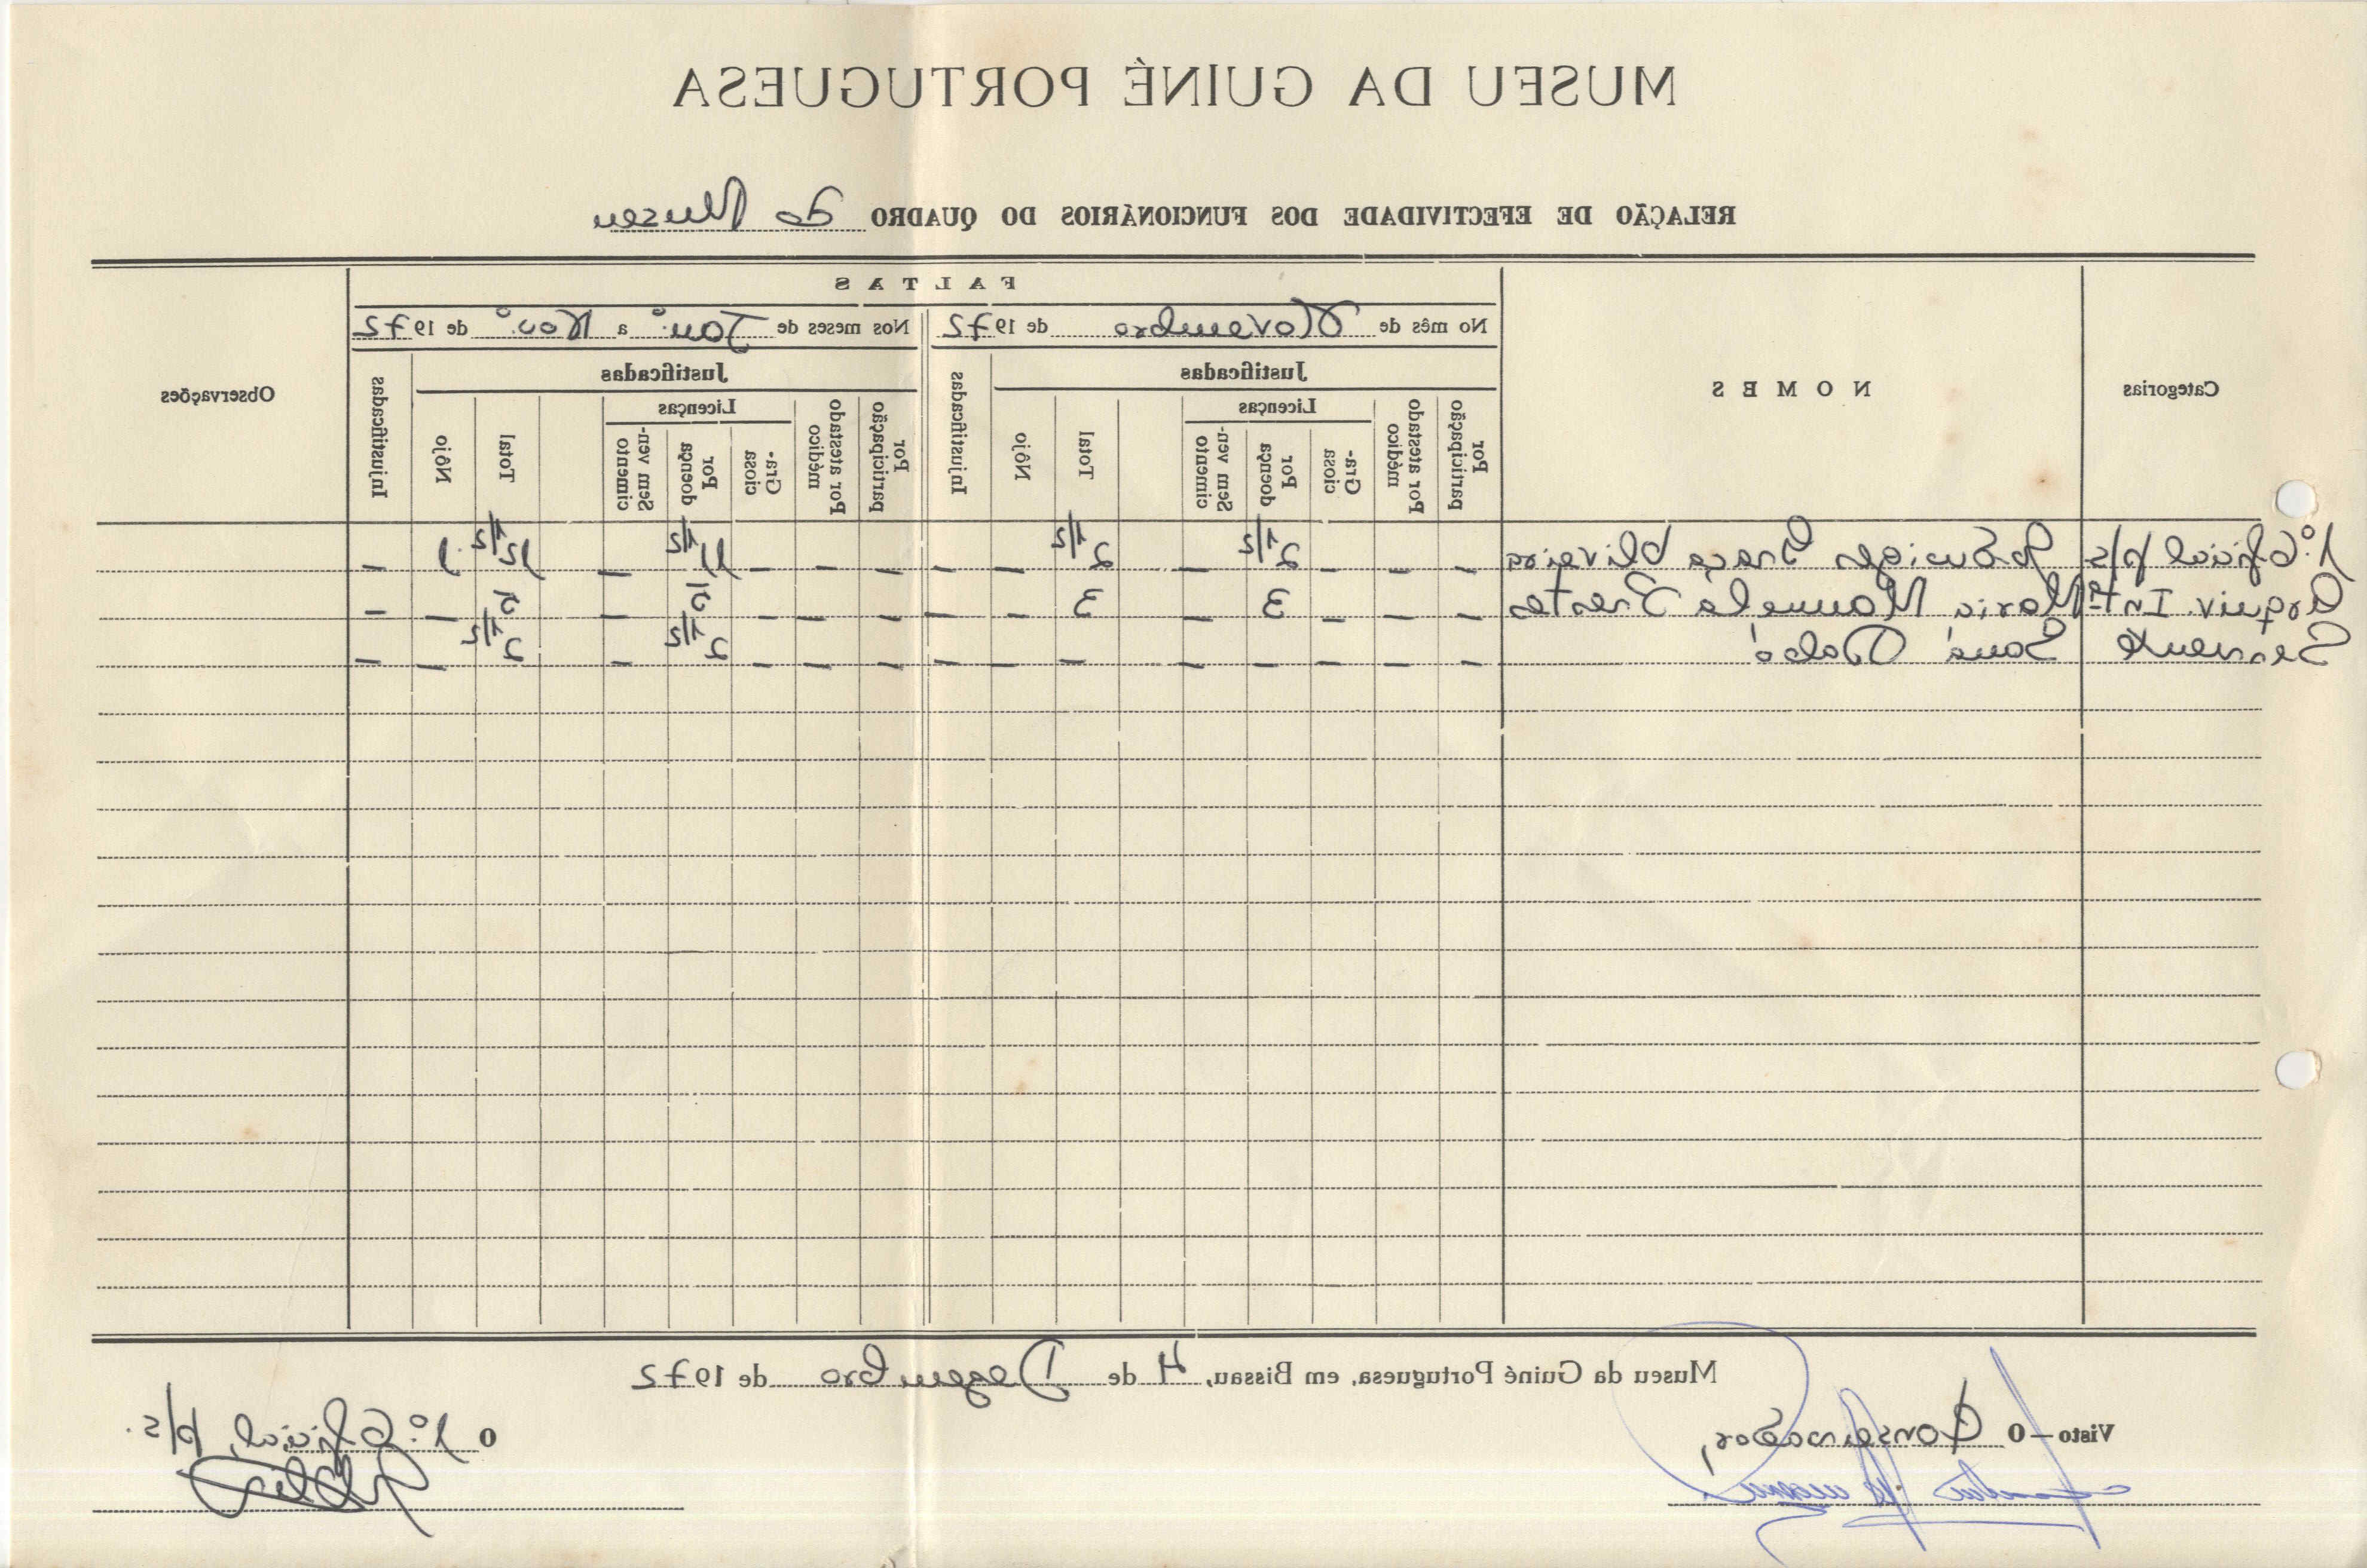 MUSEU DA GUINÉ PORTUGUESA
RELAÇÃO DE EFECTIVIDADE DOS FUNCIONÁRIOS DO QUADRO do Museu
Categorias
NOMES
FALTAS
No mês de Novembro de 1972
Nos meses de Jan.º a Nov.º de 1972
Observações
Justificadas
Justificadas
Licenças
Licenças
Por participação
Por atestado médico
Graciosa
Por doença
Sem vencimento
Total
Nôjo
Injustificadas
Por participação
Por atestado médico
Graciosa
Por doença
Sem vencimento
Total
Nôjo
Injustificadas
1.º Oficial p/s Graça Oliveira – – – 2 1/2 – 2 1/2 – – – – – 11 1/2 – 12 1/2 1 –
Arquiv. Int.º Maria Manuela – – – 3 – 3 – – – – – 5 – 5 – –
Servente Saná – – – – – – – – – – – 2 1/2 – 2 1/2 – –
Museu da Guiné Portuguesa, em Bissau, 4 de Dezembro de 1972
Visto—O Conservador,
O 1.º Oficial, p/s.